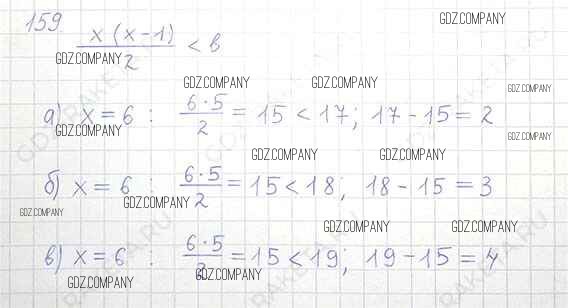 159.
GDZ.COMPANY
x (x-1)/2 < в
GDZ.COMPANY
GDZ.COMPANY GDZ.COMPANY
GDZ.COMPANY
а) x = 6 : 6·5/2 = 15 < 17; 17 - 15 = 2
GDZ.COMPANY
GDZ.COMPANY
GDZ.COMPANY GDZ.COMPANY
б) x = 6 : 6·5/2 = 15 < 18; 18 - 15 = 3
GDZ.COMPANY
GDZ.COMPANY
GDZ.COMPANY GDZ.COMPANY
в) x = 6 : 6·5/2 = 15 < 19; 19 - 15 = 4
GDZ.COMPANY GDZ.COMPANY